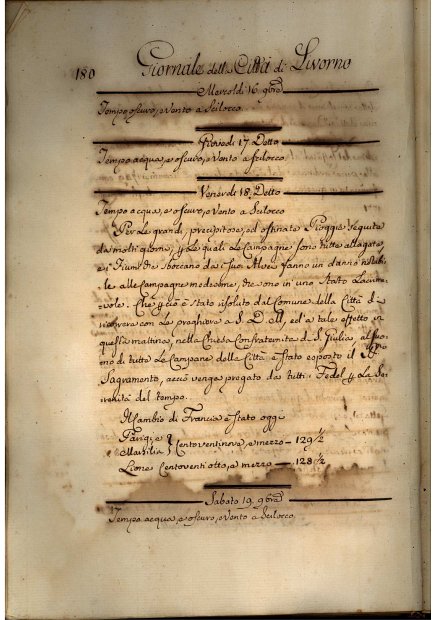 180 Giornale della Città di Livorno
Mercoldì 16 9bre
Tempo oscuro, e Vento a Scilocco
Giovedì 17 Detto
Tempo acqua, e oscuro, e Vento a scilocco
Venerdì 18 Detto
Tempo acqua, e oscuro, e Vento a Scilocco
Per Le grandi, precipitose, ed ostinate Pioggie seguite
da molti giorni, p Le quali Le Campagne sono tutte allagate,
e i Fiumi che sboccano da suoi Alvei fanno un danno
alle Campagne medesime, che sono in uno stato
Che p ciò è stato risoluto dal Comune della Città di
ricorrere con Le preghiere a S. D. M, ed a tale effetto, in
questa mattina, nella Chiesa Confraternita di S. Giulia, al suo
no di tutte Le Campane della Città è stato esposto il SS.mo
Sagramento, acciò venga pregato da tutti i Fedeli p La Se
renità del tempo.
Il Cambio di Francia è stato oggi
Parigi, e } Centoventinove, e mezzo — 129 ½
Marsilia
Lione Centoventi otto, e mezzo — 128 ½
Sabato 19 9bre
Tempo acqua, e oscuro, e Vento a Scilocco